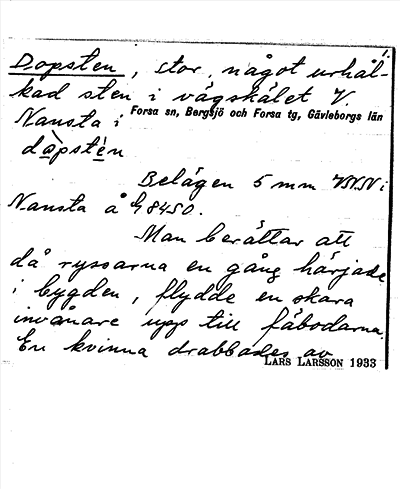 1.
Dopsten, stor, något urhål-
kad sten i vägskälet V.
Nansta i Forsa sn, Bergsjö och Forsa tg, Gävleborgs län
dåpstèn
Belägen 5 mm VNV i
Nansta å G 8450.
Man berättar att
då ryssarna en gång härjade
i bygden, flydde en skara
invånare upp till fäbodarna.
En kvinna drabbades av
LARS LARSSON 1933